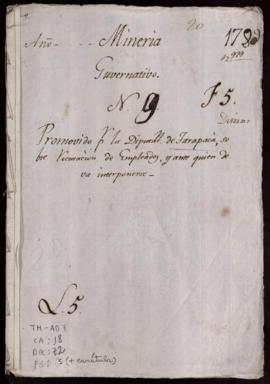 20
Año - - - - Mineria 178
Guvernativo.
N. 9 F 5.
Promovido pr la Diputn. de Tarapacá, so
bre Recusacion de Empleados, y ante quien de
va interponerse -
L. 5.
TM-AD 8
CA: 18
DOC: 72
FS: 5 (+ carátula)